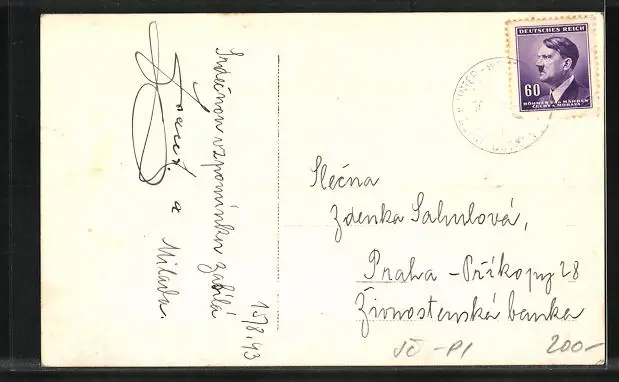 DEUTSCHES REICH
60
BÖHMEN u. MÄHREN
ČECHY a MORAVA
Slečna
Zdenka Sahulová,
Praha - Příkopy 28
Živnostenská banka
Srdečnou vzpomínku zasílá
a Milada.
15/8.43
200-